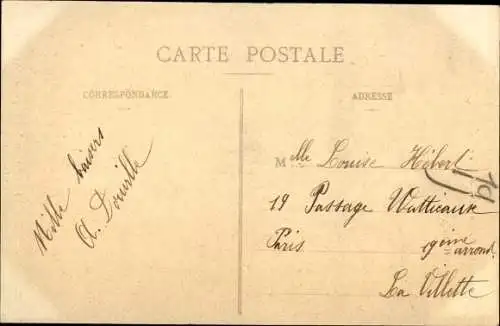 CARTE POSTALE
CORRESPONDANCE
ADRESSE
Mille baisers
A. Douville
Mlle Louise Hébert
19 Passage Watticaux
Paris 19ème arrond.
La Villette
19